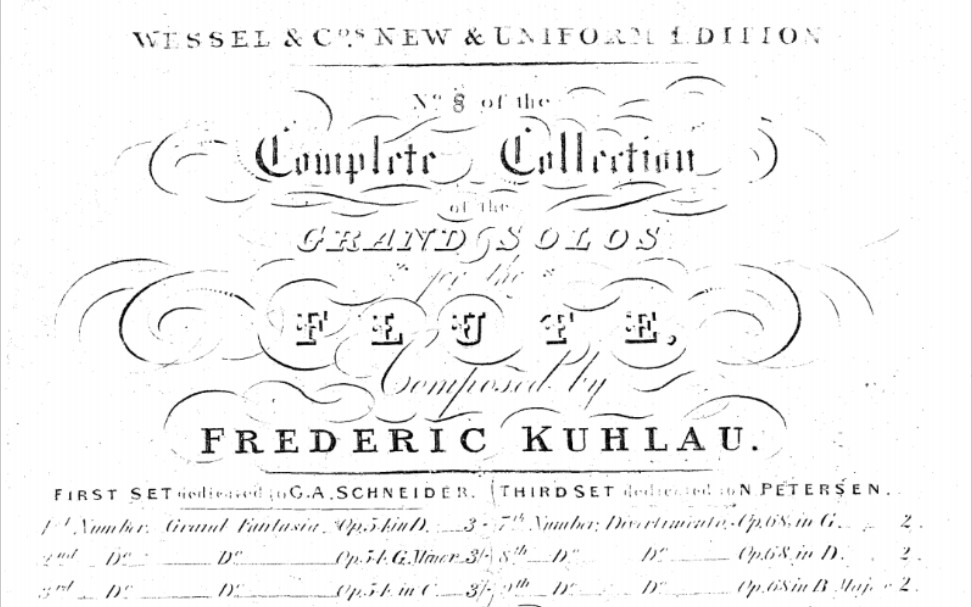 WESSEL & Cos. NEW & UNIFORM EDITION
No. 8 of the
Complete Collection
of the
GRAND SOLOS
for the
FLUTE,
Composed by
FREDERIC KUHLAU.
FIRST SET dedicated to G.A. SCHNEIDER. THIRD SET dedicated to N. PETERSEN.
1st Number. Grand Fantasia. Op.54. in D. 3/- 7th Number, Divertimento. Op.68. in G. 2.
2nd Do Do Op.54. G. Minor 3/- 8th Do Do Op.68. in D. 2.
3rd Do Do Op.54. in C. 3/- 9th Do Do Op.68 in B Maj. 2.